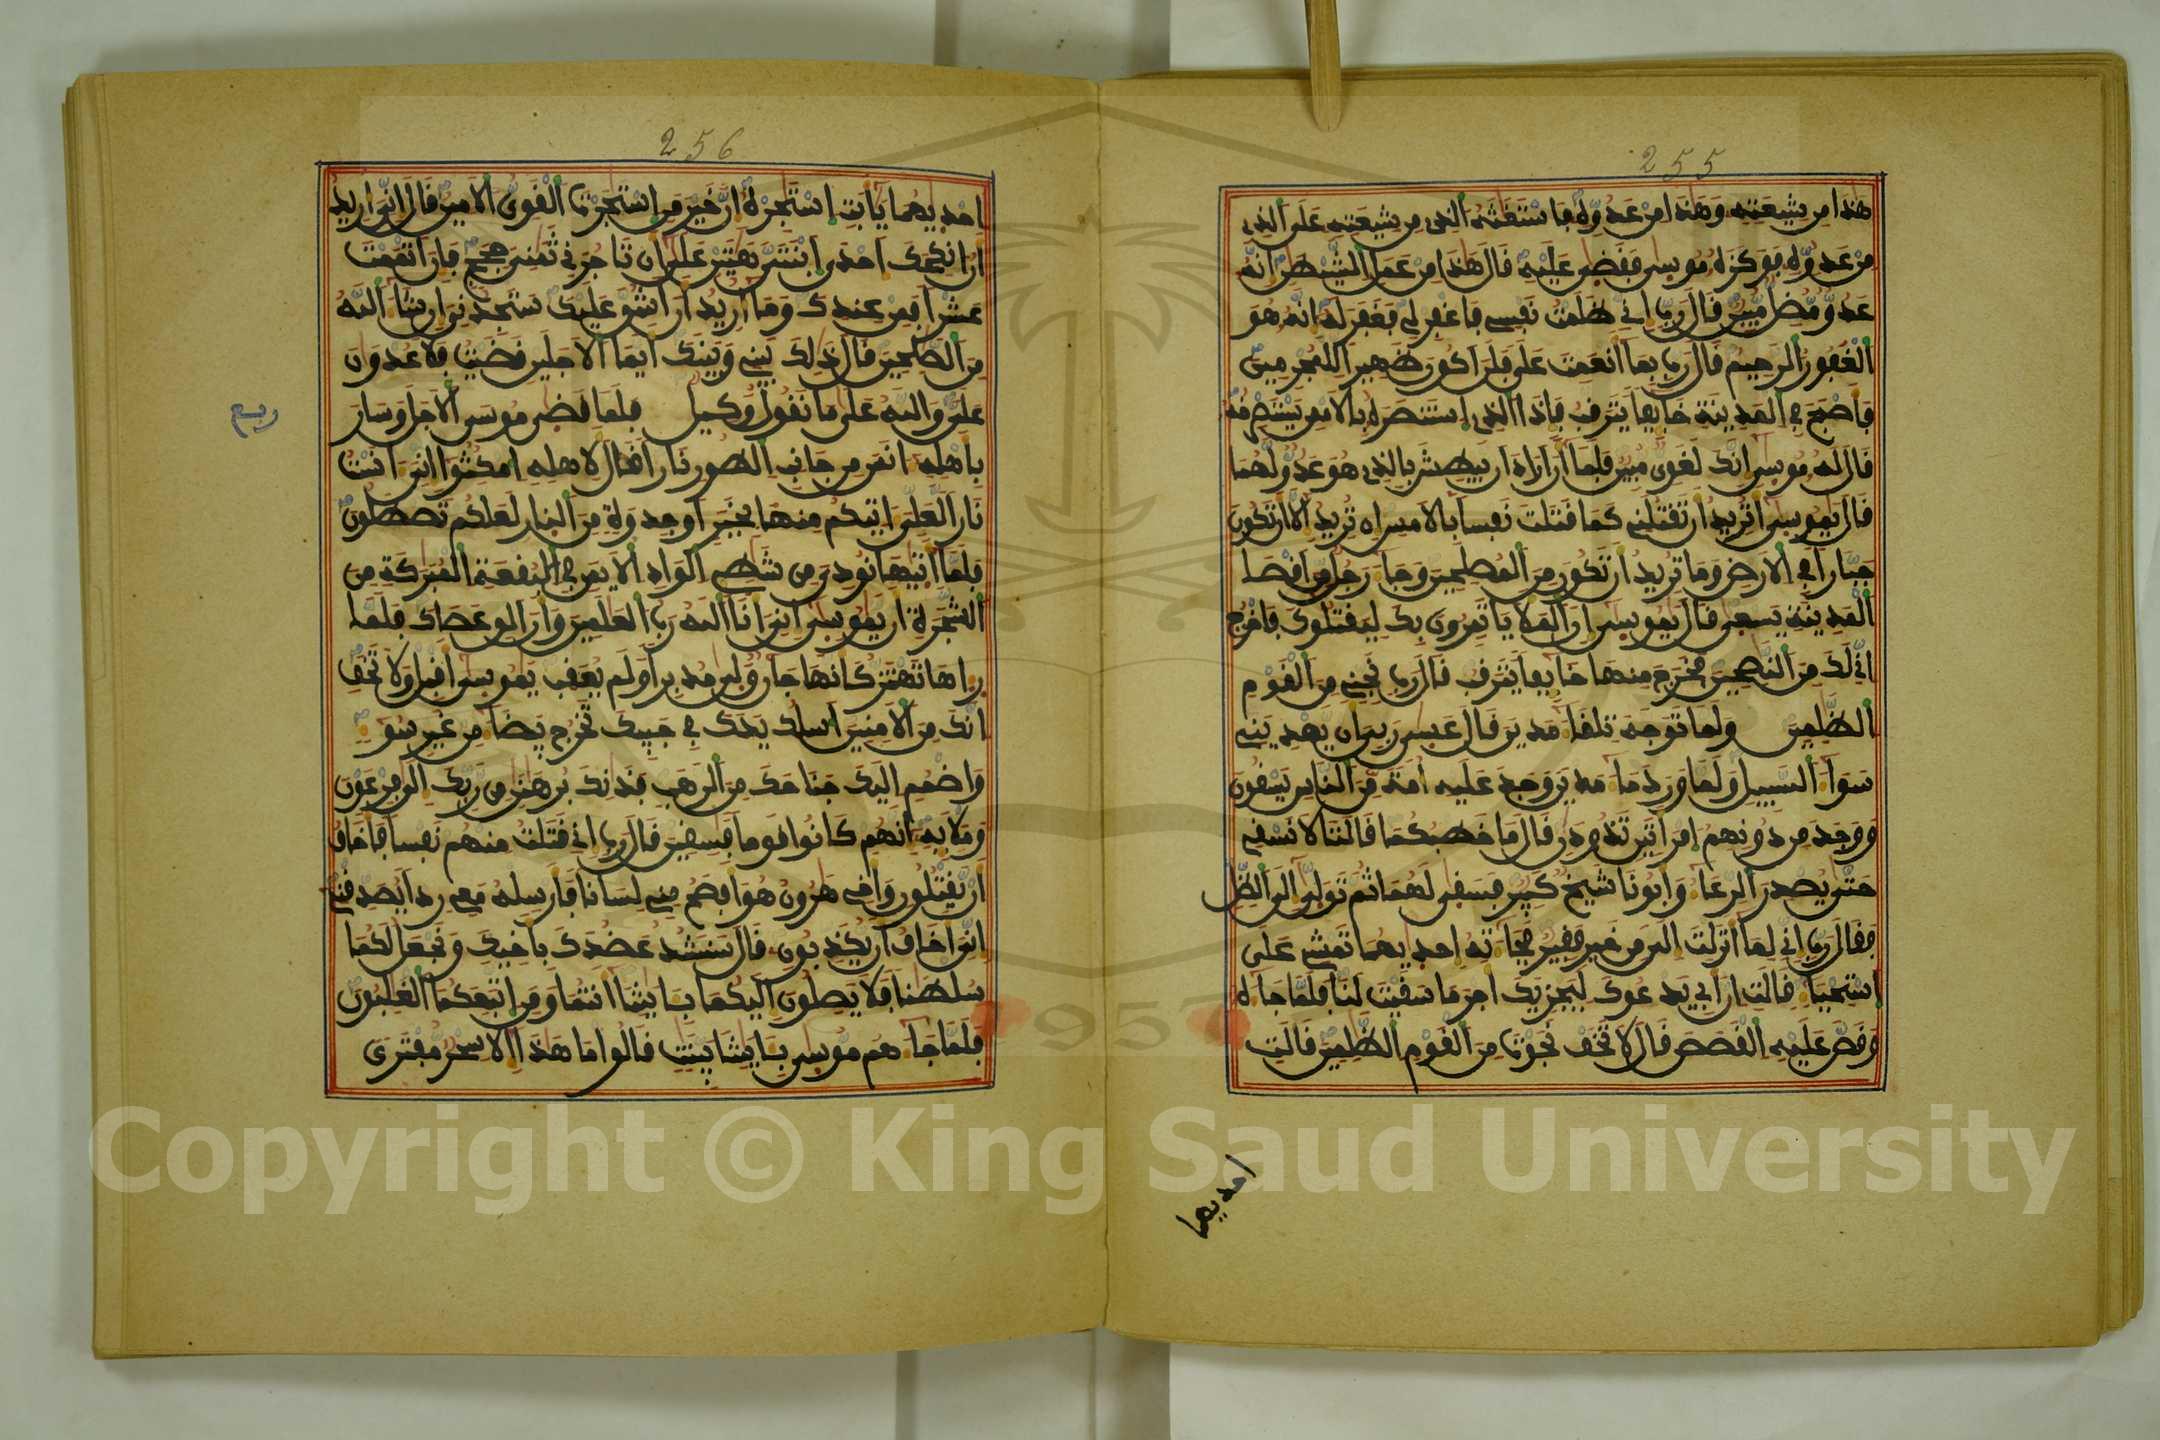 255
هذا من شيعته وهذا من عدوه فاستغثه الذي من شيعته على الذي
من عدوه فوكزه موسى فقضى عليه قال هذا من عمل الشيطن انه
عدو مضل مبين قال رب اني ظلمت نفسي فاغفر لي فغفر له انه هو
الغفور الرحيم قال رب بما انعمت علي فلن اكون ظهيرا للمجرمين
فاصبح في المدينة خايفا يترقب فاذا الذي استنصره بالامس يستصرخه
قال له موسى انك لغوي مبين فلما ان اراد ان يبطش بالذي هو عدو لهما
قال يموسى اتريد ان تقتلني كما قتلت نفسا بالامس ان تريد الا ان تكون
جبارا في الارض وما تريد ان تكون من المصلحين وجا رجل من اقصا
المدينة يسعى قال يموسى ان الملا ياتمرون بك ليقتلوك فاخرج
اني لك من النصحين فخرج منها خايفا يترقب قال رب نجني من القوم
الظلمين ولما توجه تلقا مدين قال عسى ربي ان يهديني
سوا السبيل ولما ورد ما مدين وجد عليه امة من الناس يسقون
ووجد من دونهم امراتين تذودن قال ما خطبكما قالتا لا نسقي
حتى يصدر الرعا وابونا شيخ كبير فسقى لهما ثم تولى الى الظل
فقال رب اني لما انزلت الي من خير فقير فجاته احديهما تمشي على
استحيا قالت ان ابي يدعوك ليجزيك اجر ما سقيت لنا فلما جاه
وقص عليه القصص قال لا تخف نجوت من القوم الظلمين قالت
احديهما
256
احديهما يابت استجره ان خير من استجرت القوي الامين قال اني اريد
ان انكحك احدى ابنتي هتين على ان تاجرني ثمني حجج فان اتممت
عشرا فمن عندك وما اريد ان اشق عليك ستجدني ان شا الله
من الصلحين قال ذلك بيني وبينك ايما الاجلين قضيت فلا عدون
علي والله على ما نقول وكيل فلما قضى موسى الاجل وسار
باهله انس من جانب الطور نارا قال لاهله امكثوا اني انست
نارا لعلي اتيكم منها بخبر او جذوة من النار لعلكم تصطلون
فلما اتيها نودي من شطي الواد الايمن في البقعة المبركة من
الشجرة ان يموسى اني انا الله رب العلمين وان الق عصاك فلما
راها تهتز كانها جان ولى مدبرا ولم يعقب يموسى اقبل ولا تخف
انك من الامنين اسلك يدك في جيبك تخرج بيضا من غير سو
واضمم اليك جناحك من الرهب فذنك برهنن من ربك الى فرعون
وملايه انهم كانوا قوما فسقين قال رب اني قتلت منهم نفسا فاخاف
ان يقتلون واخي هرون هو افصح مني لسانا فارسله معي ردا يصدقني
اني اخاف ان يكذبون قال سنشد عضدك باخيك ونجعل لكما
سلطنا فلا يصلون اليكما بايتنا انتما ومن اتبعكما الغلبون
فلما جاهم موسى بايتنا بينت قالوا ما هذا الا سحر مفترى
ربع
1957
Copyright © King Saud University